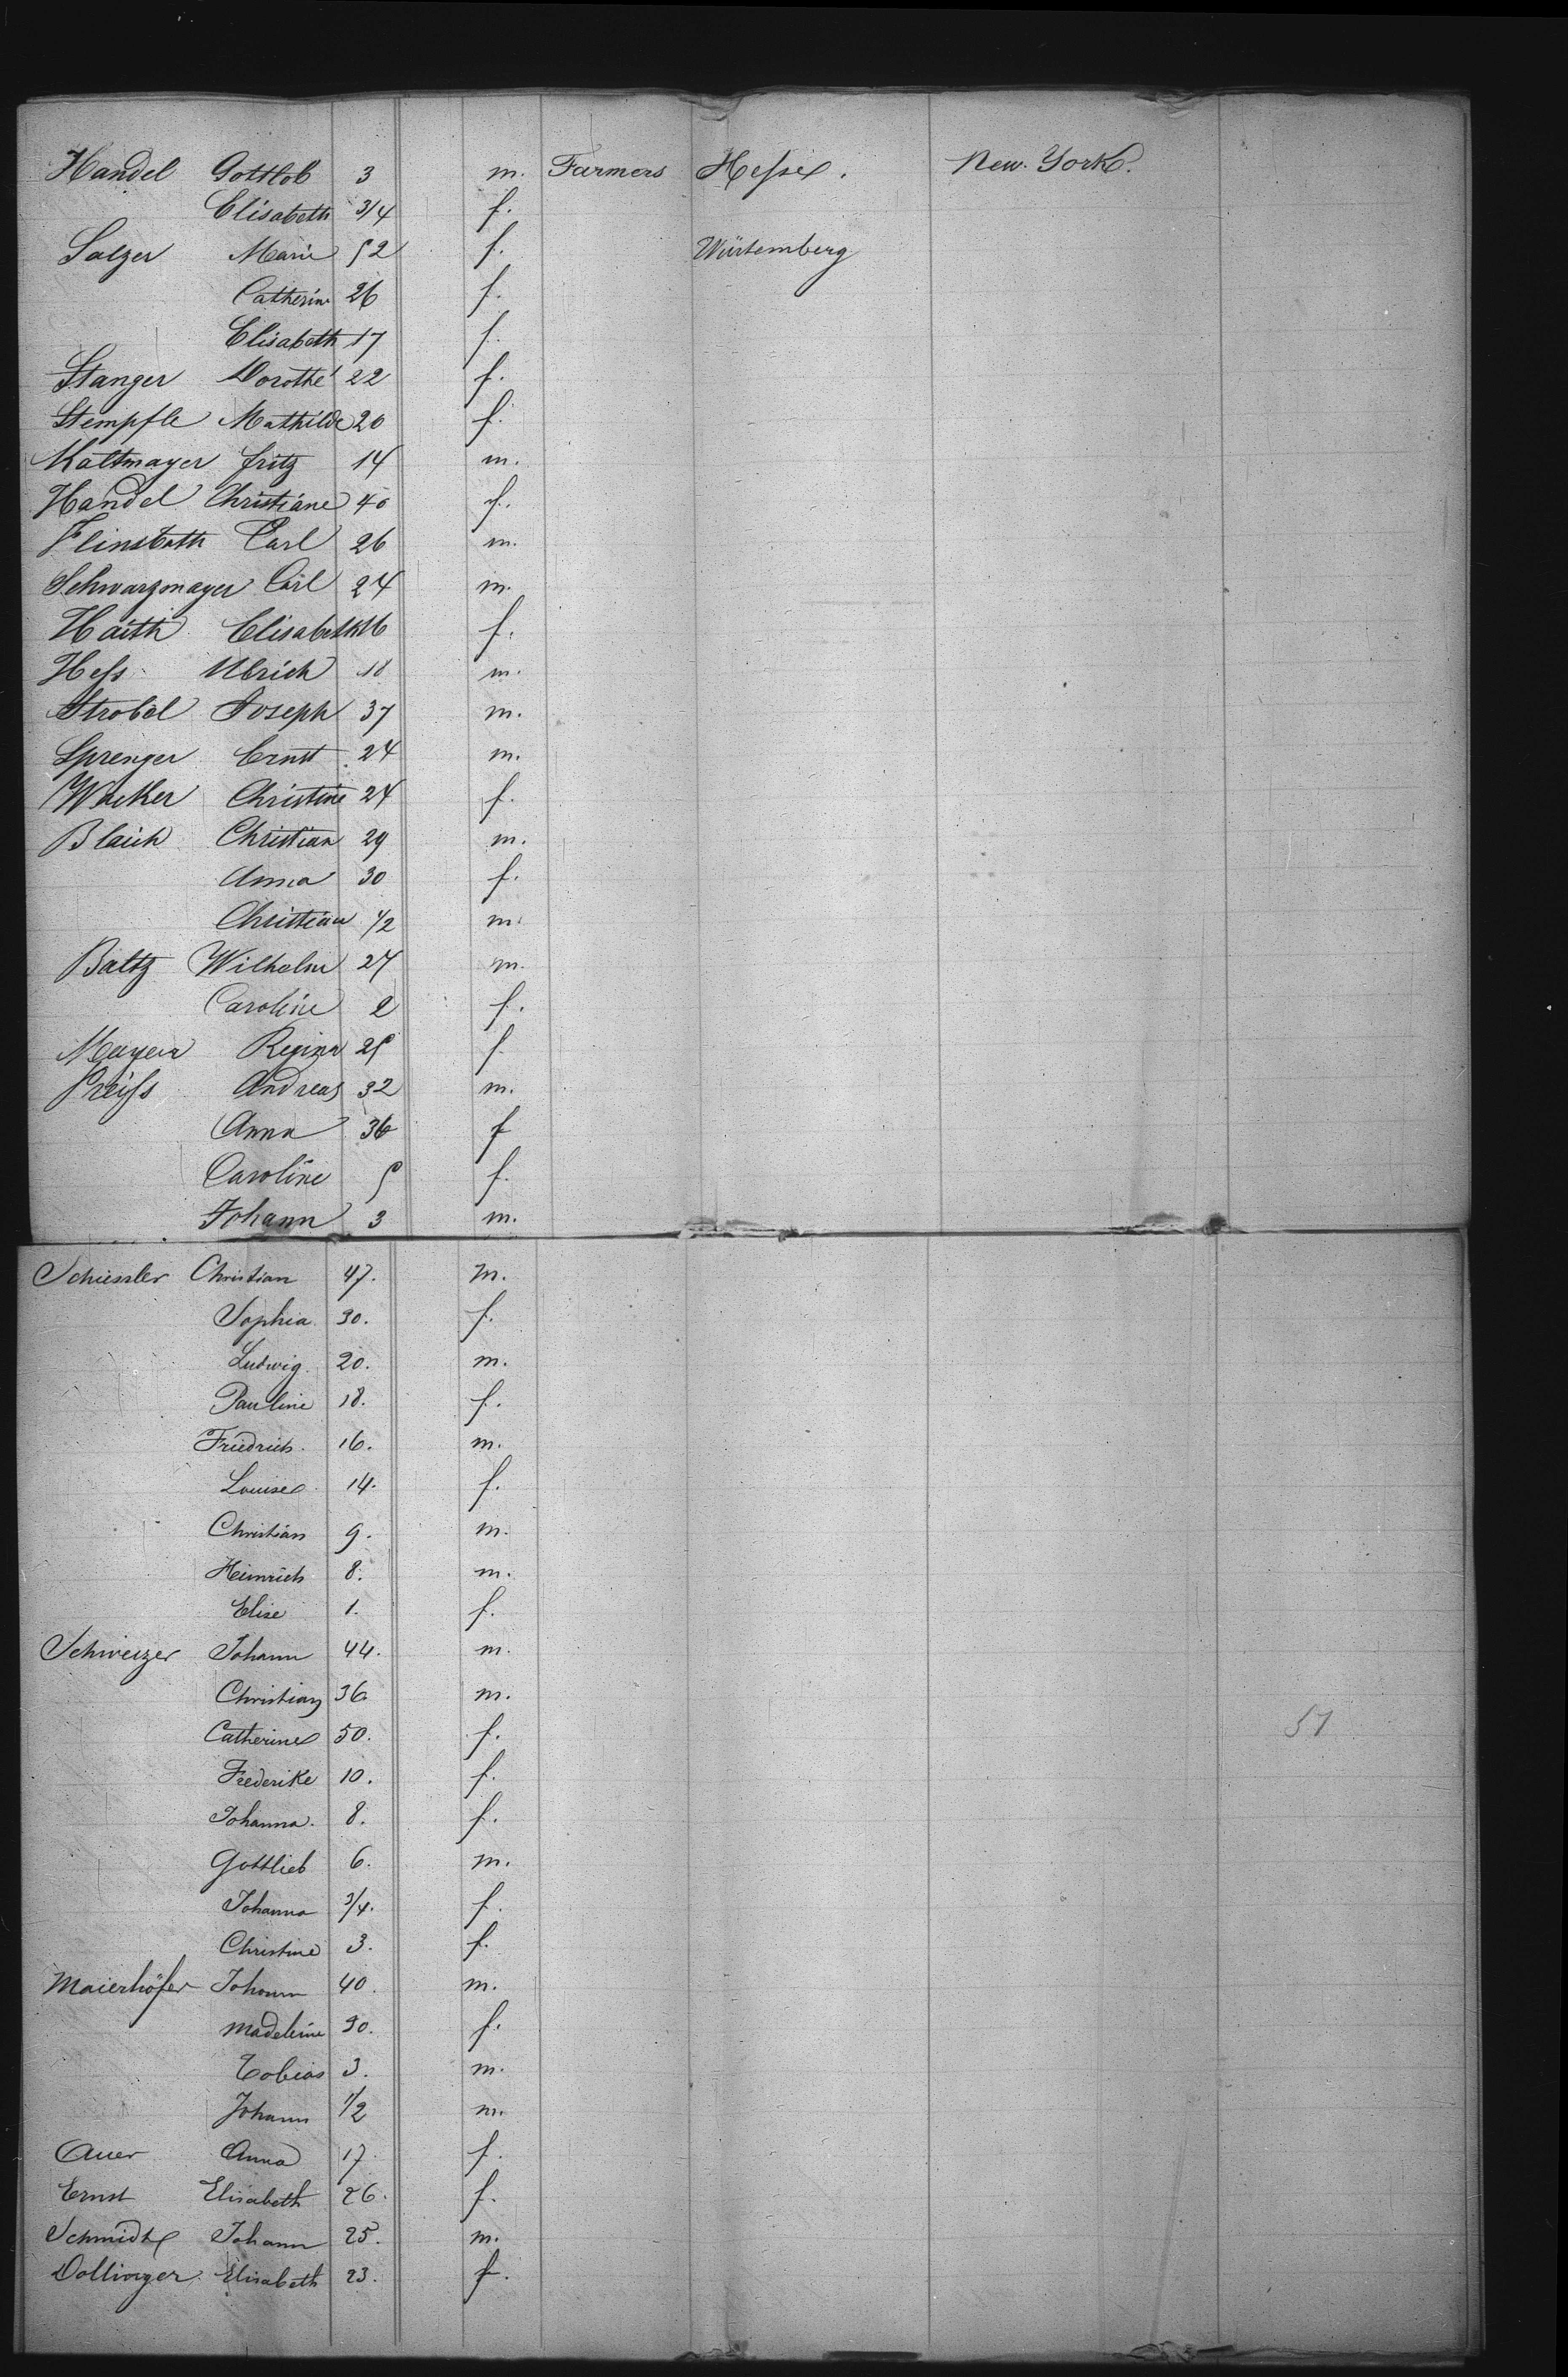 Handel Gottlob 3 m. Farmers Hesse. New-York.
Elisabeth 3/4 f.
Salzer Marie 52 f. Würtemberg
Catherine 26 f.
Elisabeth 17 f.
Stanger Dorothé 22 f.
Stempfle Mathilde 20 f.
Kaltmayer Fritz 14 m.
Handel Christiane 40 f.
Flinsbath Carl 26 m.
Schwarzmayer Carl 24 m.
Haith Elisabeth 16 f.
Hess Ulrich 18 m.
Strobel Joseph 37 m.
Sprenger Ernst 24 m.
Walker Christine 24 f.
Blaich Christian 29 m.
Anna 30 f.
Christian 1/2 m.
Baltz Wilhelm 27 m.
Caroline 2 f.
Mayer Regina 25 f.
Preiss Andreas 32 m.
Anna 36 f
Caroline 5 f.
Johann 3 m.
Schiessler Christian 47. m.
Sophia 30. f.
Ludwig 20. m.
Pauline 18. f.
Friedrich 16. m.
Louise 14. f.
Christian 9. m.
Heinrich 8. m.
Elise 1. f.
Schweizer Johann 44. m.
Christian 36 m.
Catherine 50. f. 51
Frederike 10. f.
Johanna 8. f.
Gottlieb 6. m.
Johanna 3/4. f.
Christine 3. f.
Maierhöfer Johann 40. m.
Madeleine 30. f.
Tobias 3. m.
Johann 1/2 m.
Auer Anna 17. f.
Ernst Elisabeth 26. f.
Schmidt Johann 25. m.
Dollinger Elisabeth 23. f.